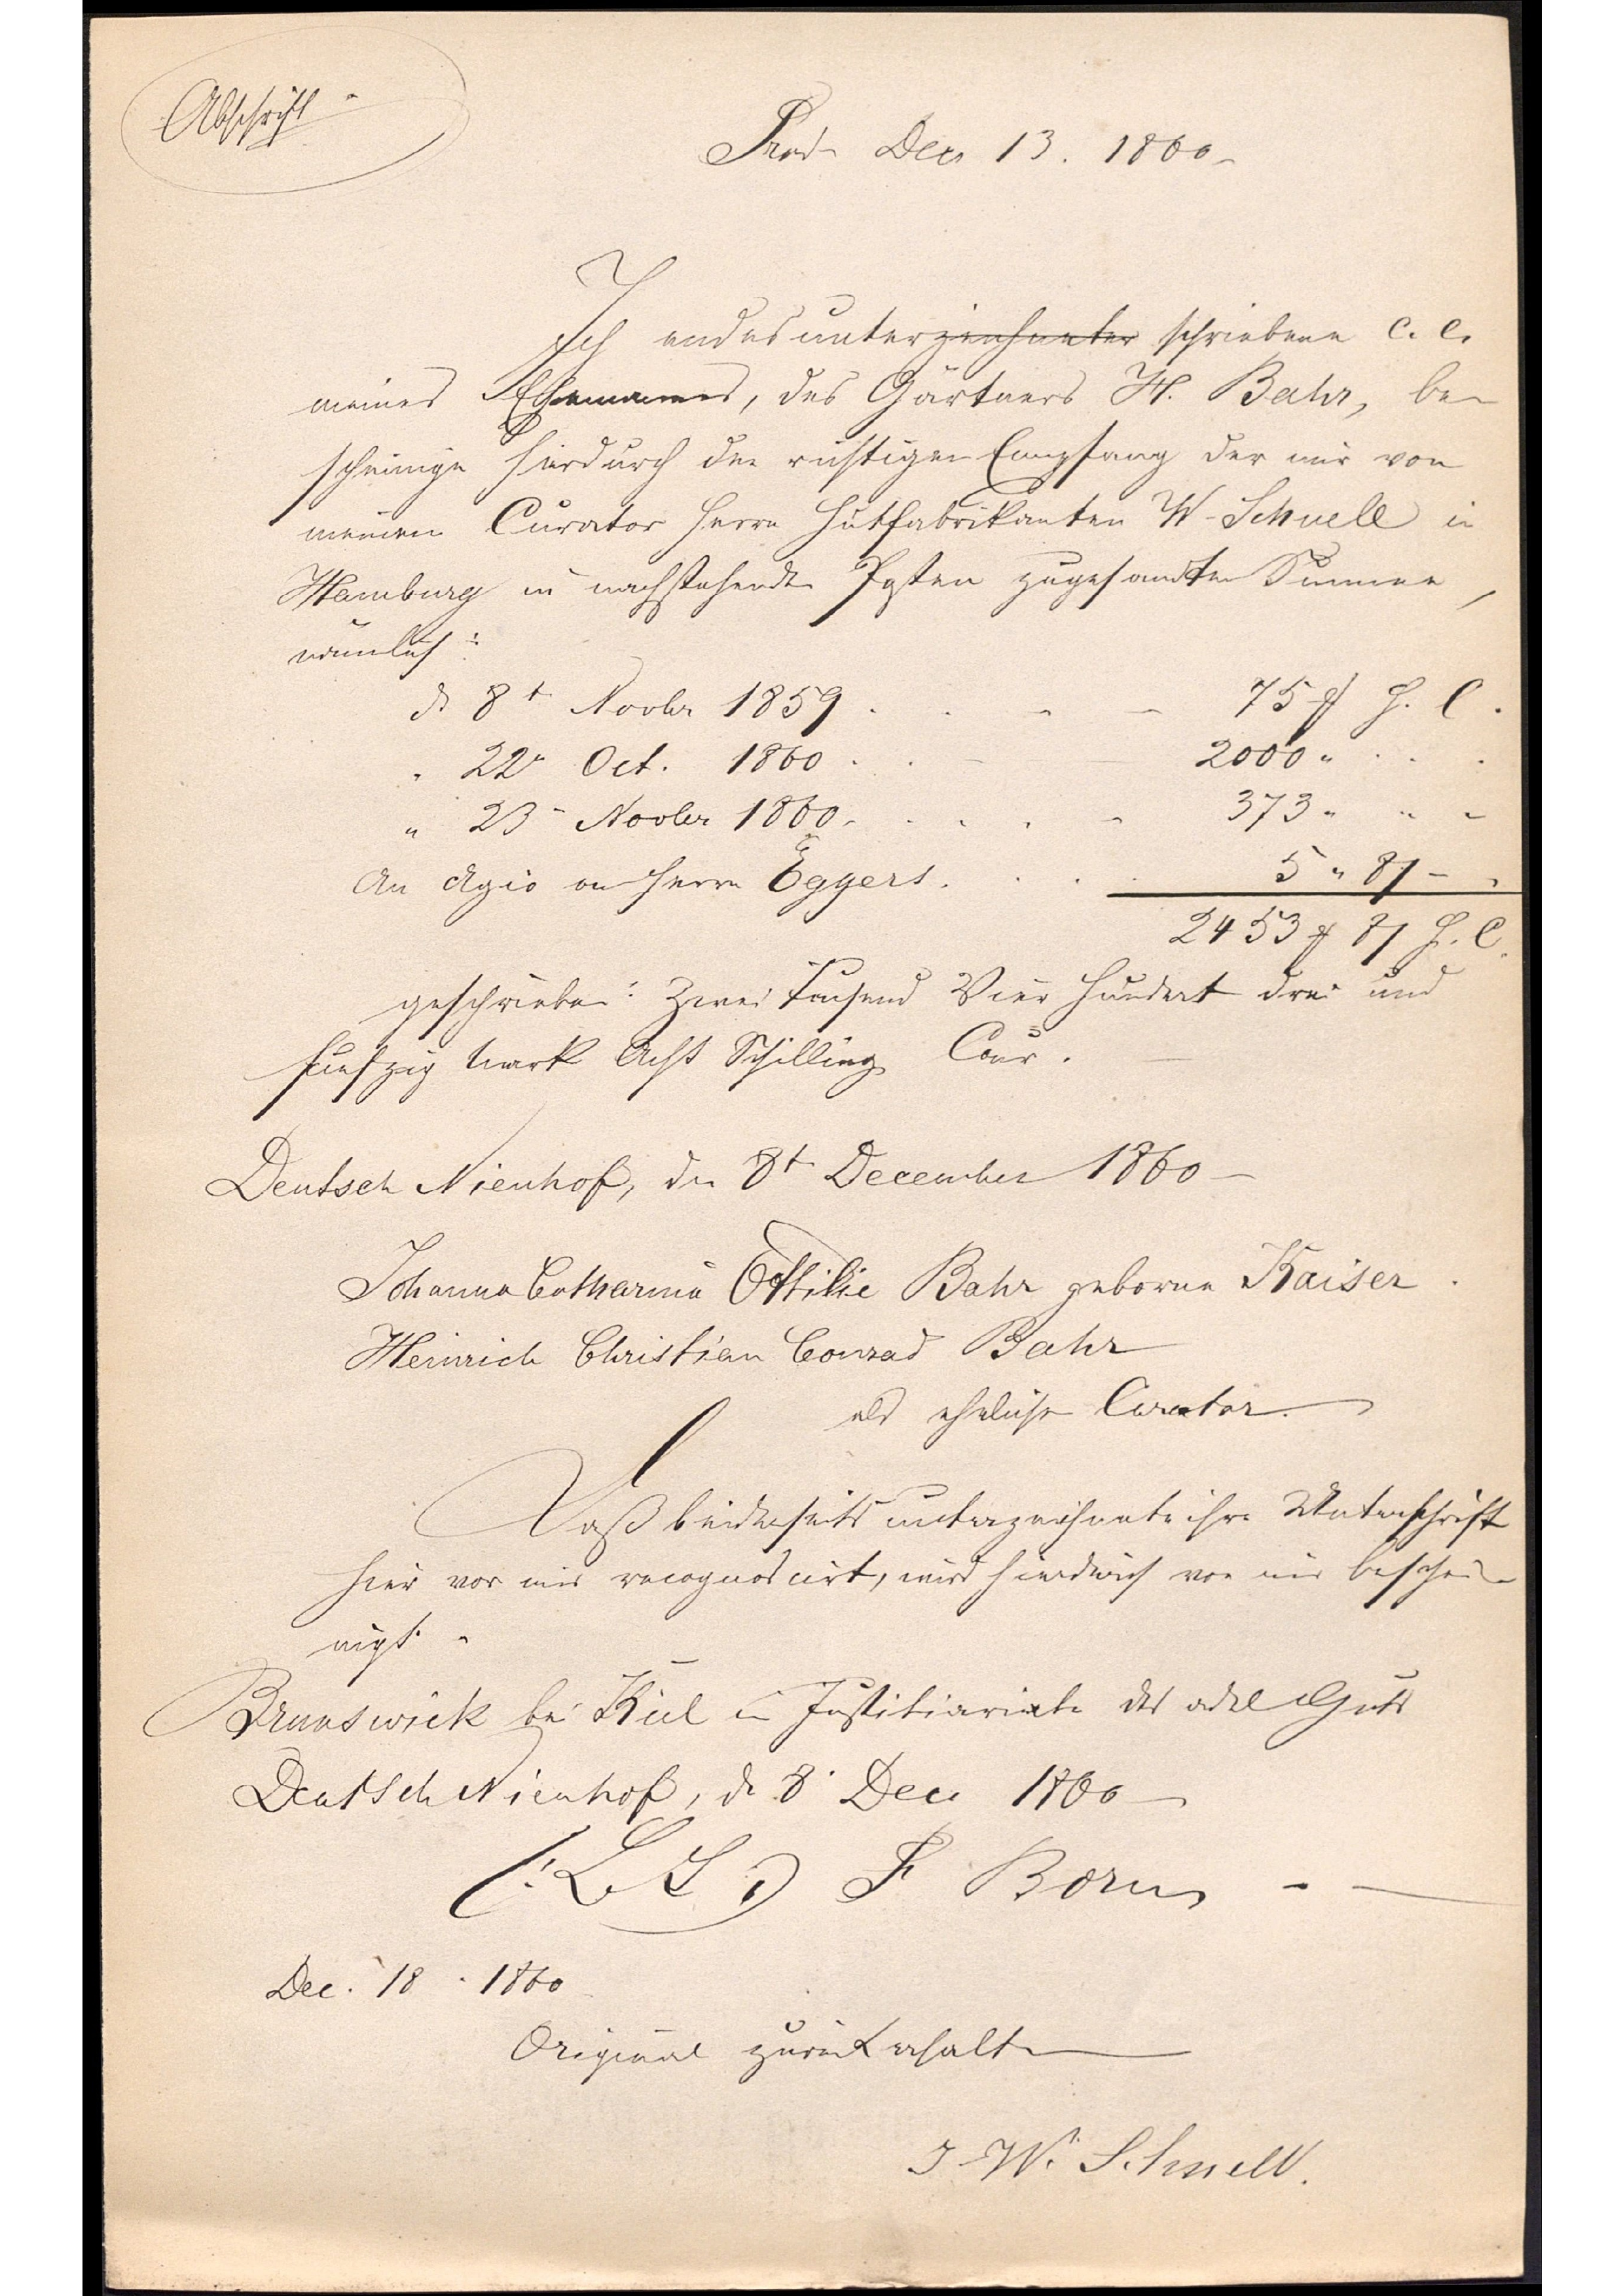 Abschrift
Prod. Dec 13. 1860
Ich endesunterzeichneter schriebene c. c.
meines Ehemannes, des Gärtners H. Bahr, be-
scheinige hierdurch den richtigen Empfang der mir von
meinem Curator Herrn Hutfabrikanten W. Schnell in
Hamburg in nachstehenden Posten zugesandten Summe,
nämlich:
d 8t Novbr 1859 . . - - 75 ₰ h. C.
" 22" Oct. 1860 . . - - 2000 " . . .
" 23 - Novbr 1860 . . . . - 373 " " -
An Agio an Herrn Eggers . . . . 5 " 8ß - .
2453 ₰ 8ß h. C.
geschrieben: Zwei Tausend Vier Hundert drei und
funfzig Mark Acht Schilling Cour.
Deutsch Nienhof, den 8t December 1860 -
Johanna Catharina Ottilie Bahr geborne Kaiser.
Heinrich Christian Conrad Bahr
als ehelicher Curator.
Daß beiderseits unterzeichnete ihre Unterschrift
hier vor mir recognoscirt, wird hierdurch von mir beschei-
nigt.
Brunswick bei Kiel im Justitiariate des adel Guts
Deutsch Nienhof, d. 8. Dec 1860
(: L S :) F Born - -
Dec. 18. 1860
Original zurück erhalten
J. W. Schnell.